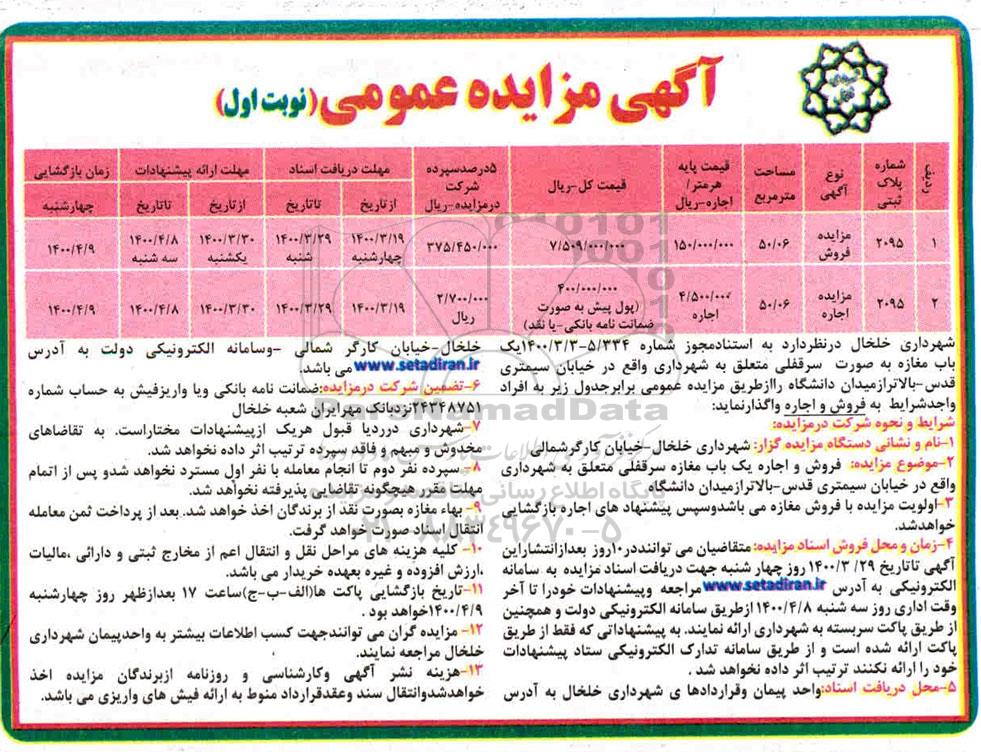 آگهی مزایده عمومی (نوبت اول)
ردیف
شماره پلاک ثبتی
نوع آگهی
مساحت مترمربع
قیمت پایه هرمتر/ اجاره-ریال
قیمت کل-ریال
۵درصدسپرده شرکت درمزایده-ریال
مهلت دریافت اسناد
ازتاریخ
تاتاریخ
مهلت ارائه پیشنهادات
ازتاریخ
تاتاریخ
زمان بازگشایی
چهارشنبه
۱
۲۰۹۵
مزایده فروش
۵۰/۰۶
۱۵۰/۰۰۰/۰۰۰
۷/۵۰۹/۰۰۰/۰۰۰
۳۷۵/۴۵۰/۰۰۰
۱۴۰۰/۳/۱۹ چهارشنبه
۱۴۰۰/۳/۲۹ شنبه
۱۴۰۰/۳/۳۰ یکشنبه
۱۴۰۰/۴/۸ سه شنبه
۱۴۰۰/۴/۹
۲
۲۰۹۵
مزایده اجاره
۵۰/۰۶
۴/۵۰۰/۰۰۰ اجاره
۴۰۰/۰۰۰/۰۰۰
(پول پیش به صورت
ضمانت نامه بانکی-یا نقد)
۲/۷۰۰/۰۰۰ ریال
۱۴۰۰/۳/۱۹
۱۴۰۰/۳/۲۹
۱۴۰۰/۳/۳۰
۱۴۰۰/۴/۸
۱۴۰۰/۴/۹
شهرداری خلخال درنظردارد به استنادمجوز شماره ۵/۳۳۴-۱۴۰۰/۳/۳یک
باب مغازه به صورت سرقفلی متعلق به شهرداری واقع در خیابان سیمتری
قدس-بالاترازمیدان دانشگاه راازطریق مزایده عمومی برابرجدول زیر به افراد
واجدشرایط به فروش و اجاره واگذارنماید:
شرایط و نحوه شرکت درمزایده:
۱-نام و نشانی دستگاه مزایده گزار: شهرداری خلخال-خیابان کارگرشمالی
۲-موضوع مزایده: فروش و اجاره یک باب مغازه سرقفلی متعلق به شهرداری
واقع در خیابان سیمتری قدس-بالاترازمیدان دانشگاه
۳-اولویت مزایده با فروش مغازه می باشدوسپس پیشنهاد های اجاره بازگشایی
خواهدشد.
۴-زمان و محل فروش اسناد مزایده: متقاضیان می تواننددر۱۰روز بعدازانتشاراین
آگهی تاتاریخ ۱۴۰۰/۳/۲۹ روز چهار شنبه جهت دریافت اسناد مزایده به سامانه
الکترونیکی به آدرس www.setadiran.ir مراجعه وپیشنهادات خودرا تا آخر
وقت اداری روز سه شنبه ۱۴۰۰/۴/۸ ازطریق سامانه الکترونیکی دولت و همچنین
از طریق پاکت سربسته به شهرداری ارائه نمایند. به پیشنهاداتی که فقط از طریق
پاکت ارائه شده است و از طریق سامانه تدارک الکترونیکی ستاد پیشنهادات
خود را ارائه نکنند ترتیب اثر داده نخواهد شد .
۵-محل دریافت اسناد:واحد پیمان وقراردادها ی شهرداری خلخال به آدرس
خلخال-خیابان کارگر شمالی -وسامانه الکترونیکی دولت به آدرس
www.setadiran.ir می باشد.
۶-تضمین شرکت درمزایده:ضمانت نامه بانکی ویا واریزفیش به حساب شماره
۲۴۳۴۸۷۵۱نزدبانک مهرایران شعبه خلخال
۷-شهرداری درردیا قبول هریک ازپیشنهادات مختاراست. به تقاضاهای
مخدوش و مبهم و فاقد سپرده ترتیب اثر داده نخواهد شد.
۸- سپرده نفر دوم تا انجام معامله با نفر اول مسترد نخواهد شدو پس از اتمام
مهلت مقرر هیچگونه تقاضایی پذیرفته نخواهد شد.
۹- بهاء مغازه بصورت نقد از برندگان اخذ خواهد شد. بعد از پرداخت ثمن معامله
انتقال اسناد صورت خواهد گرفت.
۱۰- کلیه هزینه های مراحل نقل و انتقال اعم از مخارج ثبتی و دارائی ،مالیات
،ارزش افزوده و غیره بعهده خریدار می باشد.
۱۱-تاریخ بازگشایی پاکت ها(الف-ب-ج)ساعت ۱۷ بعدازظهر روز چهارشنبه
۱۴۰۰/۴/۹خواهد بود .
۱۲- مزایده گران می توانندجهت کسب اطلاعات بیشتر به واحدپیمان شهرداری
خلخال مراجعه نمایند.
۱۳-هزینه نشر آگهی وکارشناسی و روزنامه ازبرندگان مزایده اخذ
خواهدشدوانتقال سند وعقدقرارداد منوط به ارائه فیش های واریزی می باشد.